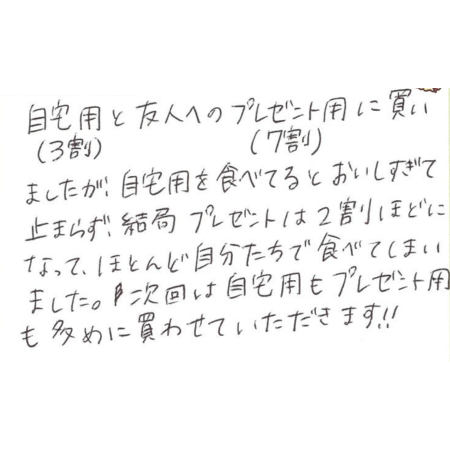 自宅用と友人へのプレゼント用に買い
(3割) (7割)
ましたが、自宅用を食べてるとおいしすぎて
止まらず、結局プレゼントは2割ほどに
なって、ほとんど自分たちで食べてしまい
ました。次回は自宅用もプレゼント用
も多めに買わせていただきます!!